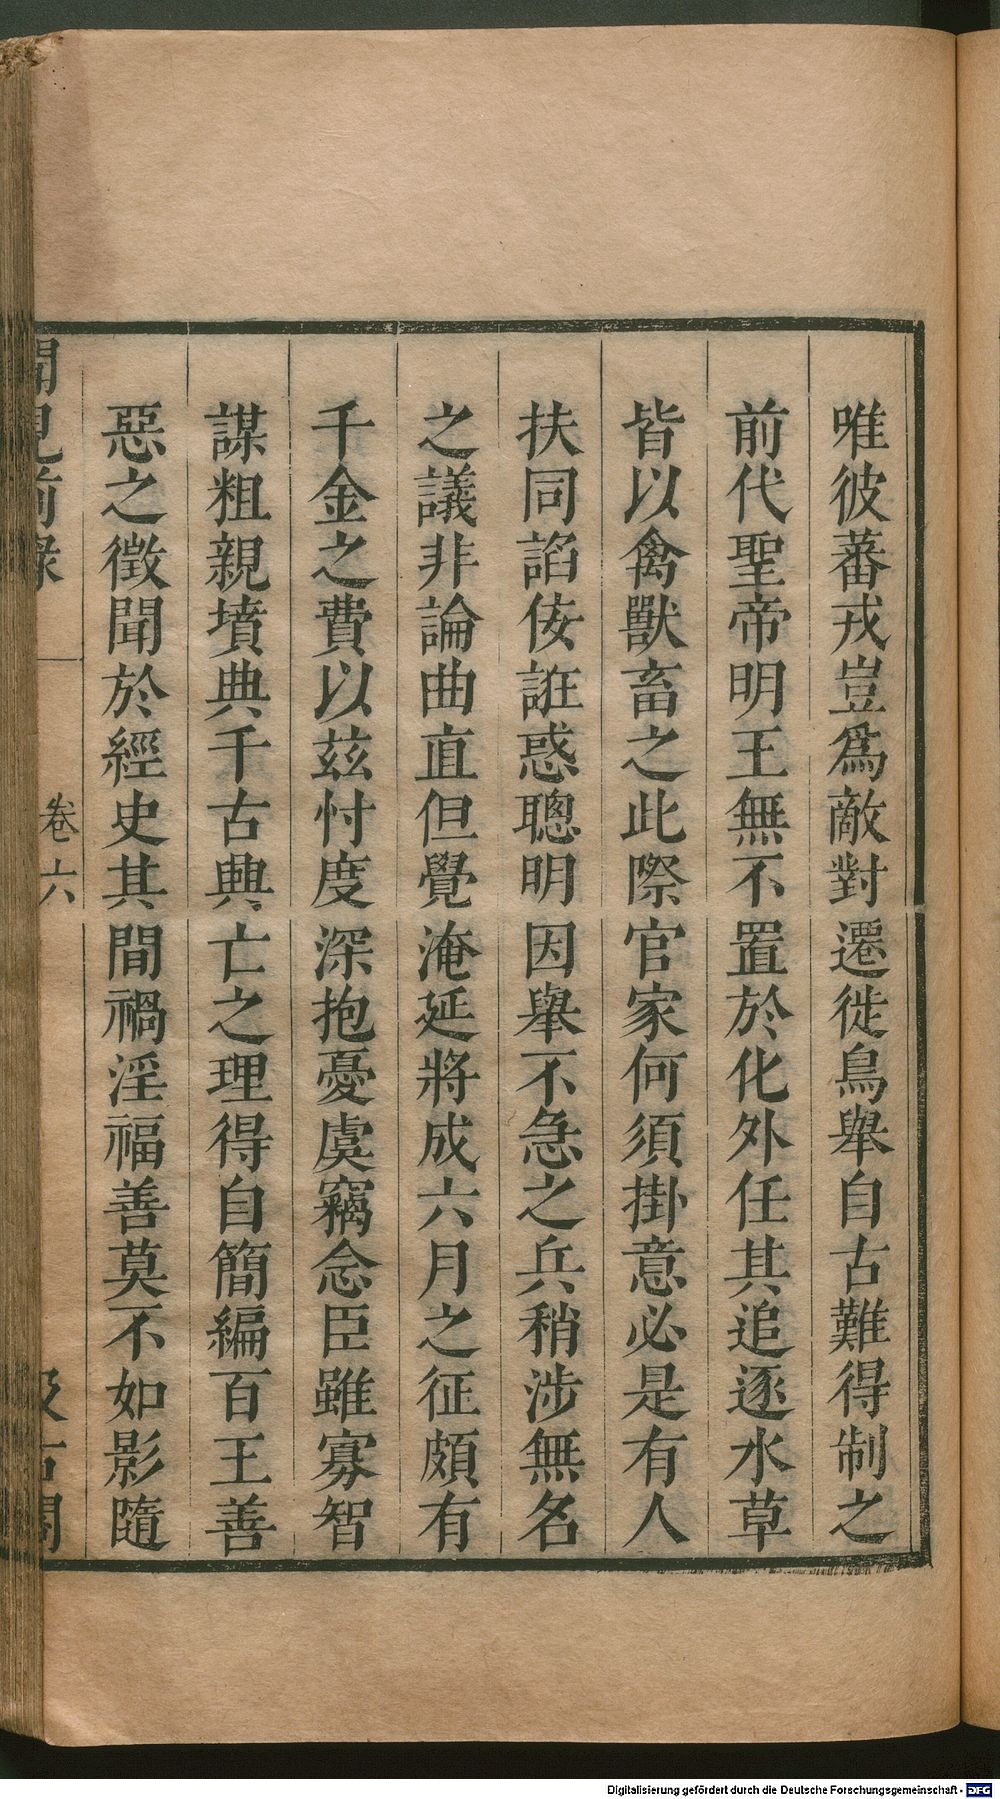 唯彼蕃戎豈爲敵對遷徙鳥舉自古難得制之
前代聖帝明王無不置於化外任其追逐水草
皆以禽獸畜之此際官家何須掛意必是有人
扶同諂侫誑惑聰明因舉不急之兵稍涉無名
之議非論曲直但覺淹延將成六月之征頗有
千金之費以兹忖度深抱憂虞竊念臣雖寡智
謀粗親墳典千古興亡之理得自簡編百王善
惡之徵聞於經史其間禍淫福善莫不如影隨
聞見前錄 卷六 汲古閣
Digitalisierung gefördert durch die Deutsche Forschungsgemeinschaft - DFG